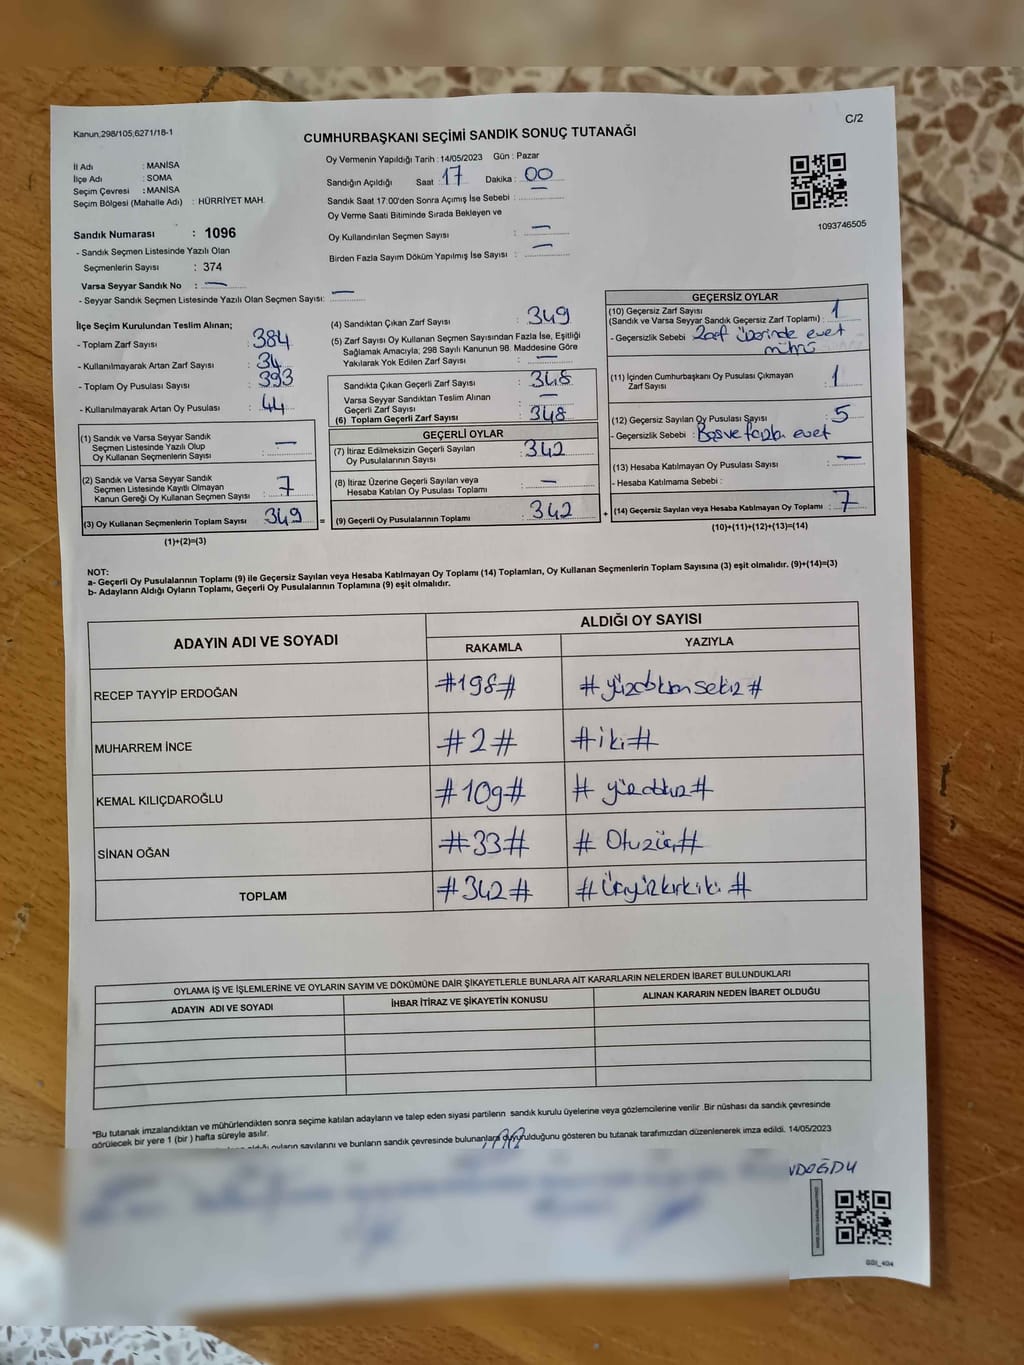 Kanun,298/105,6271/18-1
C/2
CUMHURBAŞKANI SEÇİMİ SANDIK SONUÇ TUTANAĞI
İl Adı : MANİSA
İlçe Adı : SOMA
Seçim Çevresi : MANİSA
Seçim Bölgesi (Mahalle Adı) : HÜRRİYET MAH.
Sandık Numarası : 1096
- Sandık Seçmen Listesinde Yazılı Olan
Seçmenlerin Sayısı : 374
Varsa Seyyar Sandık No : —
- Seyyar Sandık Seçmen Listesinde Yazılı Olan Seçmen Sayısı: —
Oy Vermenin Yapıldığı Tarih : 14/05/2023 Gün : Pazar
Sandığın Açıldığı Saat : 17 Dakika : 00
Sandık Saat 17:00'den Sonra Açımış İse Sebebi : —
Oy Verme Saati Bitiminde Sırada Bekleyen ve
Oy Kullandırılan Seçmen Sayısı : —
Birden Fazla Sayım Döküm Yapılmış İse Sayısı : —
1093746505
İlçe Seçim Kurulundan Teslim Alınan;
- Toplam Zarf Sayısı : 384
- Kullanılmayarak Artan Zarf Sayısı : 34
- Toplam Oy Pusulası Sayısı : 393
- Kullanılmayarak Artan Oy Pusulası : 44
(1) Sandık ve Varsa Seyyar Sandık
Seçmen Listesinde Yazılı Olup
Oy Kullanan Seçmenlerin Sayısı : —
(2) Sandık ve Varsa Seyyar Sandık
Seçmen Listesinde Kayıtlı Olmayan
Kanun Gereği Oy Kullanan Seçmen Sayısı : 7
(3) Oy Kullanan Seçmenlerin Toplam Sayısı : 349 =
(1)+(2)=(3)
(4) Sandıktan Çıkan Zarf Sayısı : 349
(5) Zarf Sayısı Oy Kullanan Seçmen Sayısından Fazla İse, Eşitliği
Sağlamak Amacıyla; 298 Sayılı Kanunun 98. Maddesine Göre
Yakılarak Yok Edilen Zarf Sayısı : —
Sandıkta Çıkan Geçerli Zarf Sayısı : 348
Varsa Seyyar Sandıktan Teslim Alınan
Geçerli Zarf Sayısı : —
(6) Toplam Geçerli Zarf Sayısı : 348
GEÇERLİ OYLAR
(7) İtiraz Edilmeksizin Geçerli Sayılan
Oy Pusulalarının Sayısı : 342
(8) İtiraz Üzerine Geçerli Sayılan veya
Hesaba Katılan Oy Pusulası Toplamı : —
(9) Geçerli Oy Pusulalarının Toplamı : 342 +
GEÇERSİZ OYLAR
(10) Geçersiz Zarf Sayısı
(Sandık ve Varsa Seyyar Sandık Geçersiz Zarf Toplamı) : 1
- Geçersizlik Sebebi : Zarf üzerinde evet
mührü
(11) İçinden Cumhurbaşkanı Oy Pusulası Çıkmayan
Zarf Sayısı : 1
(12) Geçersiz Sayılan Oy Pusulası Sayısı : 5
- Geçersizlik Sebebi : Boş ve fazla evet
(13) Hesaba Katılmayan Oy Pusulası Sayısı : —
- Hesaba Katılmama Sebebi :
(14) Geçersiz Sayılan veya Hesaba Katılmayan Oy Toplamı : 7
(10)+(11)+(12)+(13)=(14)
NOT:
a- Geçerli Oy Pusulalarının Toplamı (9) ile Geçersiz Sayılan veya Hesaba Katılmayan Oy Toplamı (14) Toplamları, Oy Kullanan Seçmenlerin Toplam Sayısına (3) eşit olmalıdır. (9)+(14)=(3)
b- Adayların Aldığı Oyların Toplamı, Geçerli Oy Pusulalarının Toplamına (9) eşit olmalıdır.
ADAYIN ADI VE SOYADI
ALDIĞI OY SAYISI
RAKAMLA YAZIYLA
RECEP TAYYİP ERDOĞAN #198# #yüzdoksansekiz#
MUHARREM İNCE #2# #iki#
KEMAL KILIÇDAROĞLU #109# #yüzdokuz#
SİNAN OĞAN #33# #Otuzüç#
TOPLAM #342# #üçyüzkırkiki#
OYLAMA İŞ VE İŞLEMLERİNE VE OYLARIN SAYIM VE DÖKÜMÜNE DAİR ŞİKAYETLERLE BUNLARA AİT KARARLARIN NELERDEN İBARET BULUNDUKLARI
ADAYIN ADI VE SOYADI İHBAR İTİRAZ VE ŞİKAYETİN KONUSU ALINAN KARARIN NEDEN İBARET OLDUĞU
*Bu tutanak imzalandıktan ve mühürlendikten sonra seçime katılan adayların ve talep eden siyasi partilerin sandık kurulu üyelerine veya gözlemcilerine verilir .Bir nüshası da sandık çevresinde
görülecek bir yere 1 (bir ) hafta süreyle asılır.
oyların sayılarını ve bunların sandık çevresinde bulunanlara duyurulduğunu gösteren bu tutanak tarafımızdan düzenlenerek imza edildi. 14/05/2023